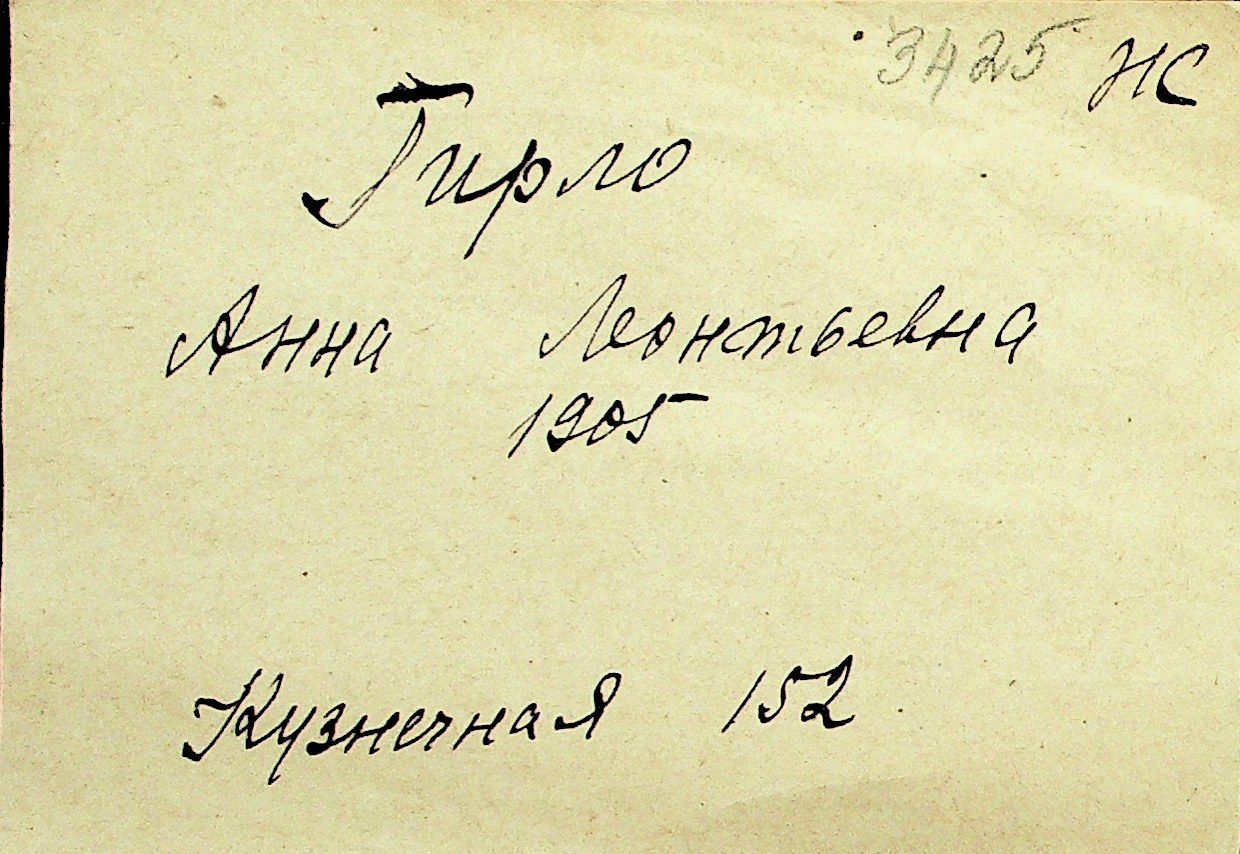 3425 НС
Гирло
Анна Леонтьевна
1905
Кузнечная 152